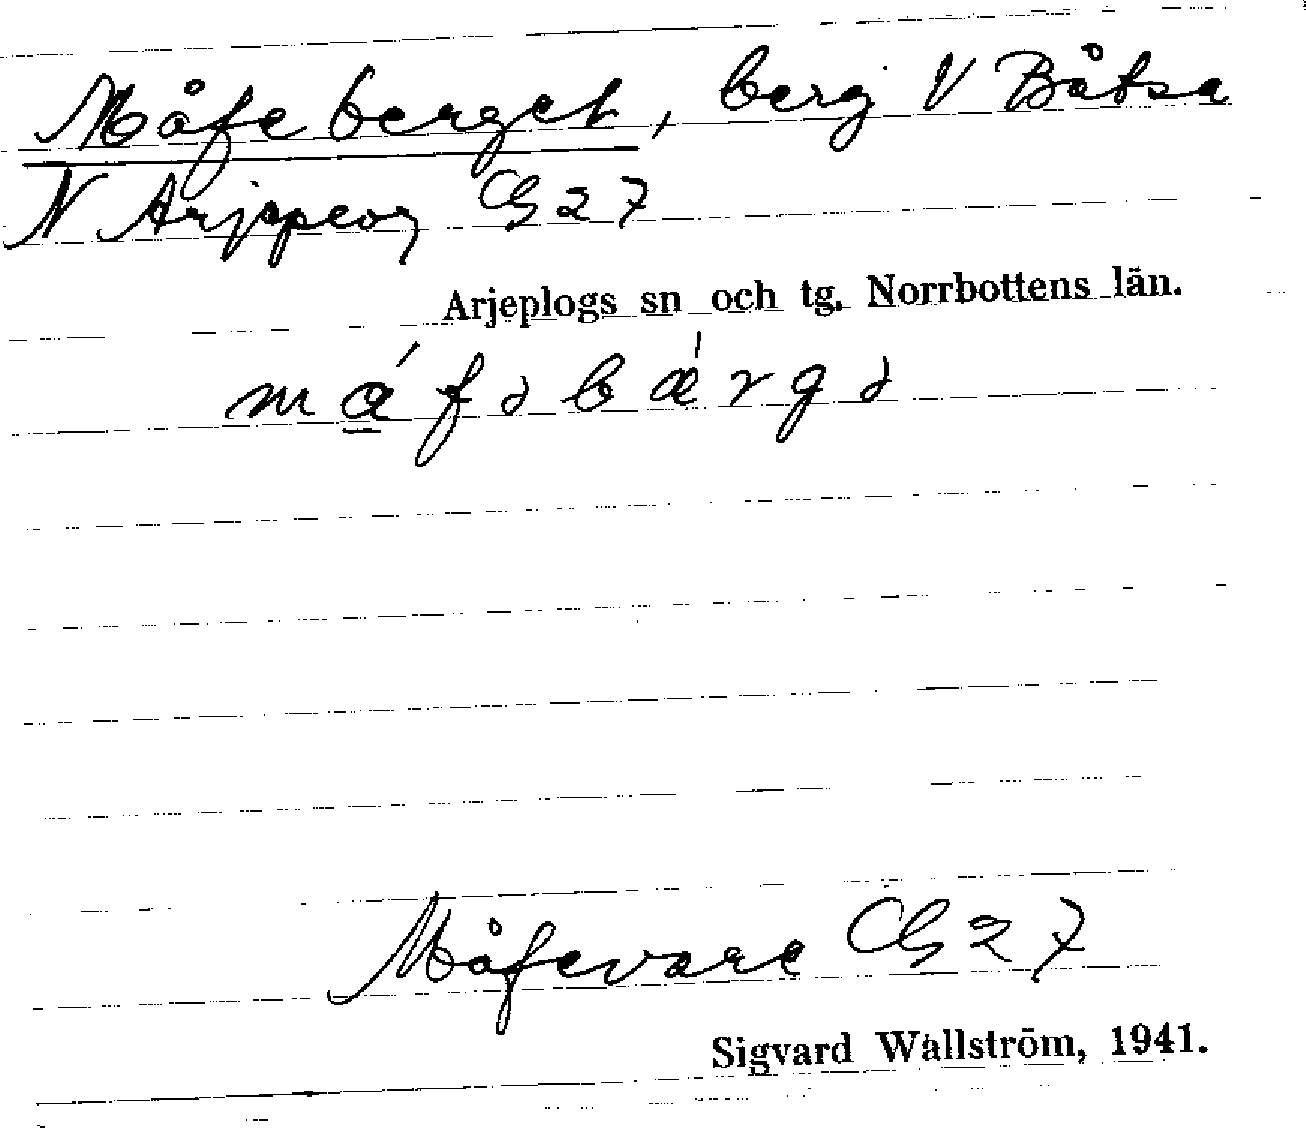 Måfeberget, berg V Båtsa
N Arjepeog CG 27
Arjeplogs sn och tg. Norrbottens län.
Måfevare CG 27
Sigvard Wallström, 1941.